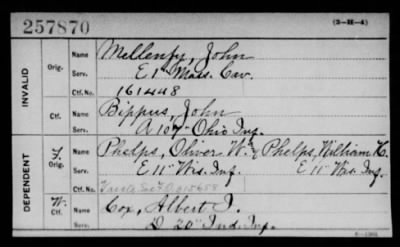 257870
(3-H-4)
INVALID
Orig.
Name Mellenfy, John
Serv. E 1" Mass. Cav.
Ctf. No. 161448
Ctf.
Name Bippus, John
Serv. A 107" Ohio Inf.
DEPENDENT
F.
Orig.
Name Phelps, Oliver W. & Phelps, William H.
Serv. E 11" Wis. Inf. E 11" Wis. Inf.
Ctf. No.
W.
Ctf.
Name Cox, Albert J.
Serv. D 20" Ind. Inf.